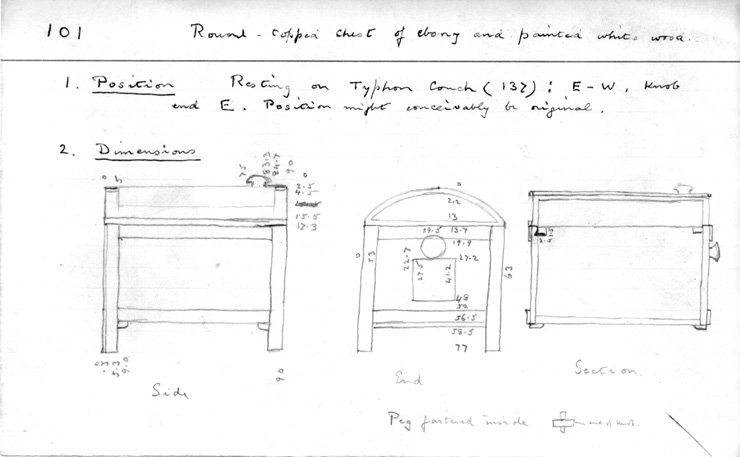 101 Round-topped chest of ebony and painted white wood.
1. Position Resting on Typhon Couch (137): E-W, Knob
end E. Position might conceivably be original.
2. Dimensions
75 83.3 84.7 90
0
2.5
4.5
15.5
17.3
0
2.2
13
19.5 13.7
19.9
27.2
0
53
22.7
27.5
41.2
63
48
52
56.5
58.5
77
2.5
90
Side
End
Section.
Peg fastened inside